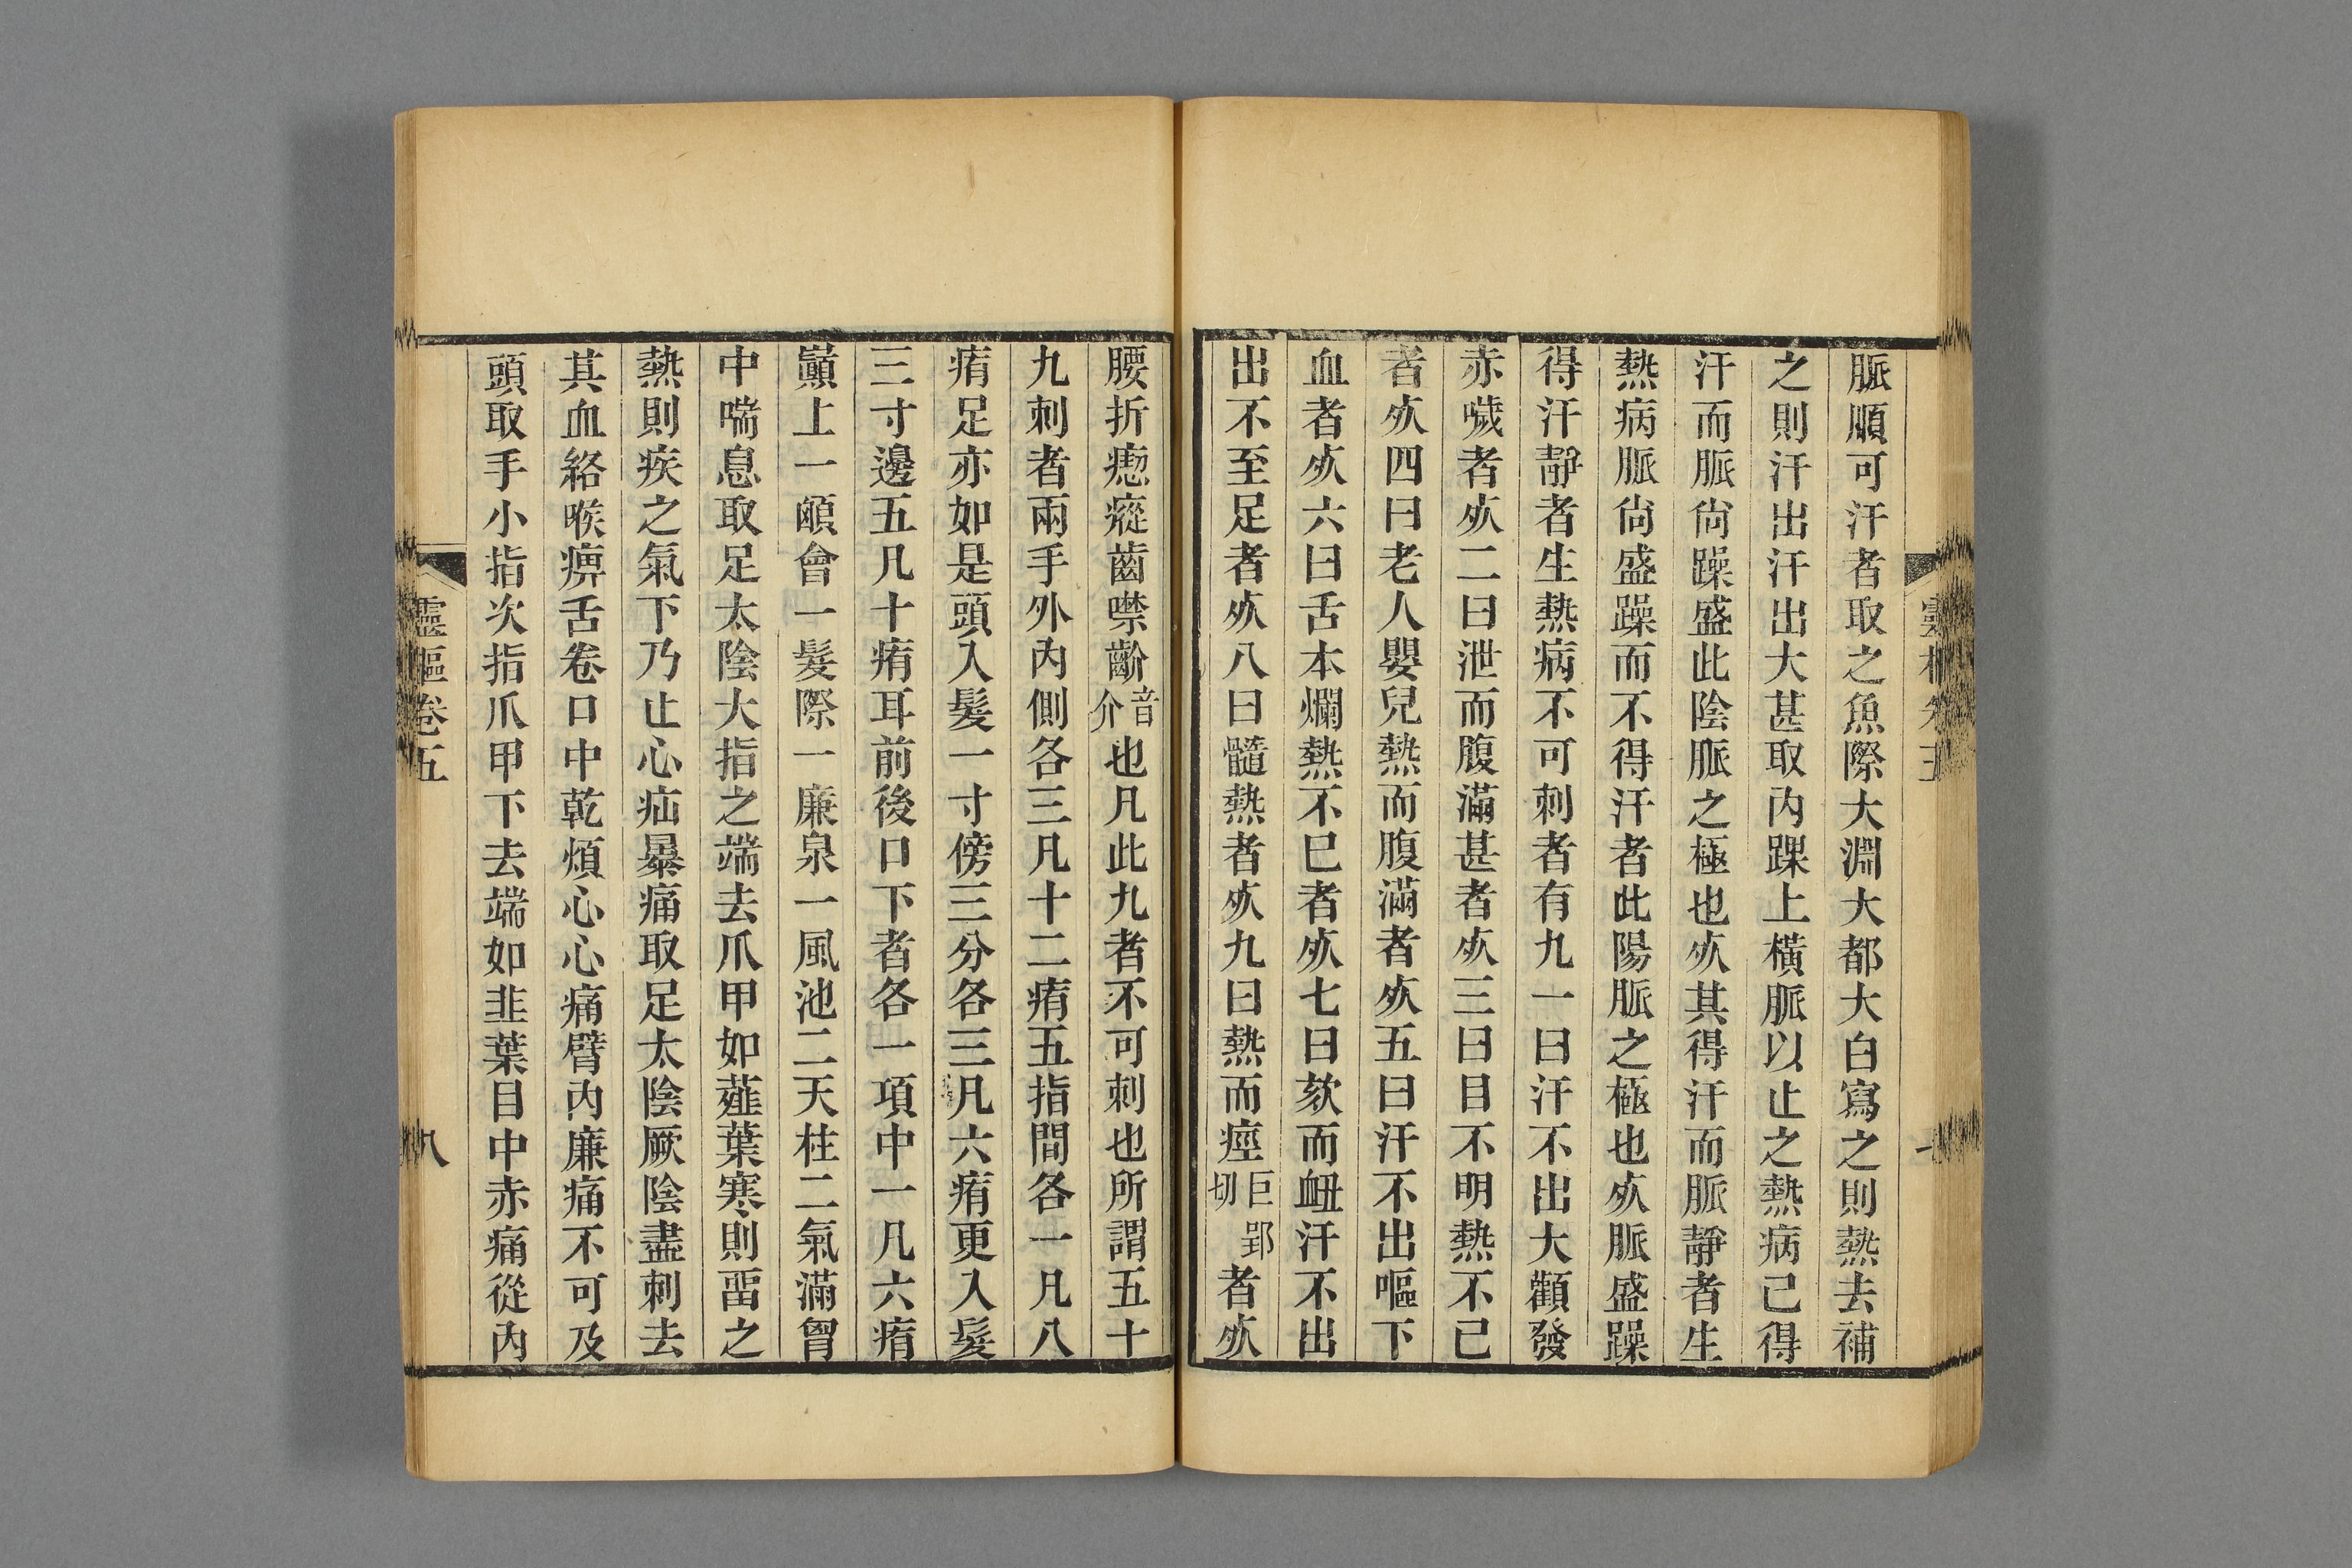 脈順可汗者取之魚際大淵大都大白寫之則熱去補
之則汗出汗出大甚取內踝上橫脈以止之熱病已得
汗而脈尙躁盛此陰脈之極也死其得汗而脈靜者生
熱病脈尙盛躁而不得汗者此陽脈之極也死脈盛躁
得汗靜者生熱病不可刺者有九一曰汗不出大顴發
赤噦者死二曰泄而腹滿甚者死三曰目不明熱不已
者死四曰老人嬰兒熱而腹滿者死五曰汗不出嘔下
血者死六曰舌本爛熱不已者死七曰欬而衄汗不出
出不至足者死八曰髓熱者死九曰熱而痙巨郢切者死
腰折瘛瘲齒噤齘音介也凡此九者不可刺也所謂五十
九刺者兩手外內側各三凡十二痏五指間各一凡八
痏足亦如是頭入髮一寸傍三分各三凡六痏更入髮
三寸邊五凡十痏耳前後口下者各一項中一凡六痏
巓上一顖會一髮際一廉泉一風池二天柱二氣滿胷
中喘息取足太陰大指之端去爪甲如薤葉寒則畱之
熱則疾之氣下乃止心疝暴痛取足太陰厥陰盡刺去
其血絡喉痹舌卷口中乾煩心心痛臂內廉痛不可及
頭取手小指次指爪甲下去端如韭葉目中赤痛從內
靈樞卷五
八